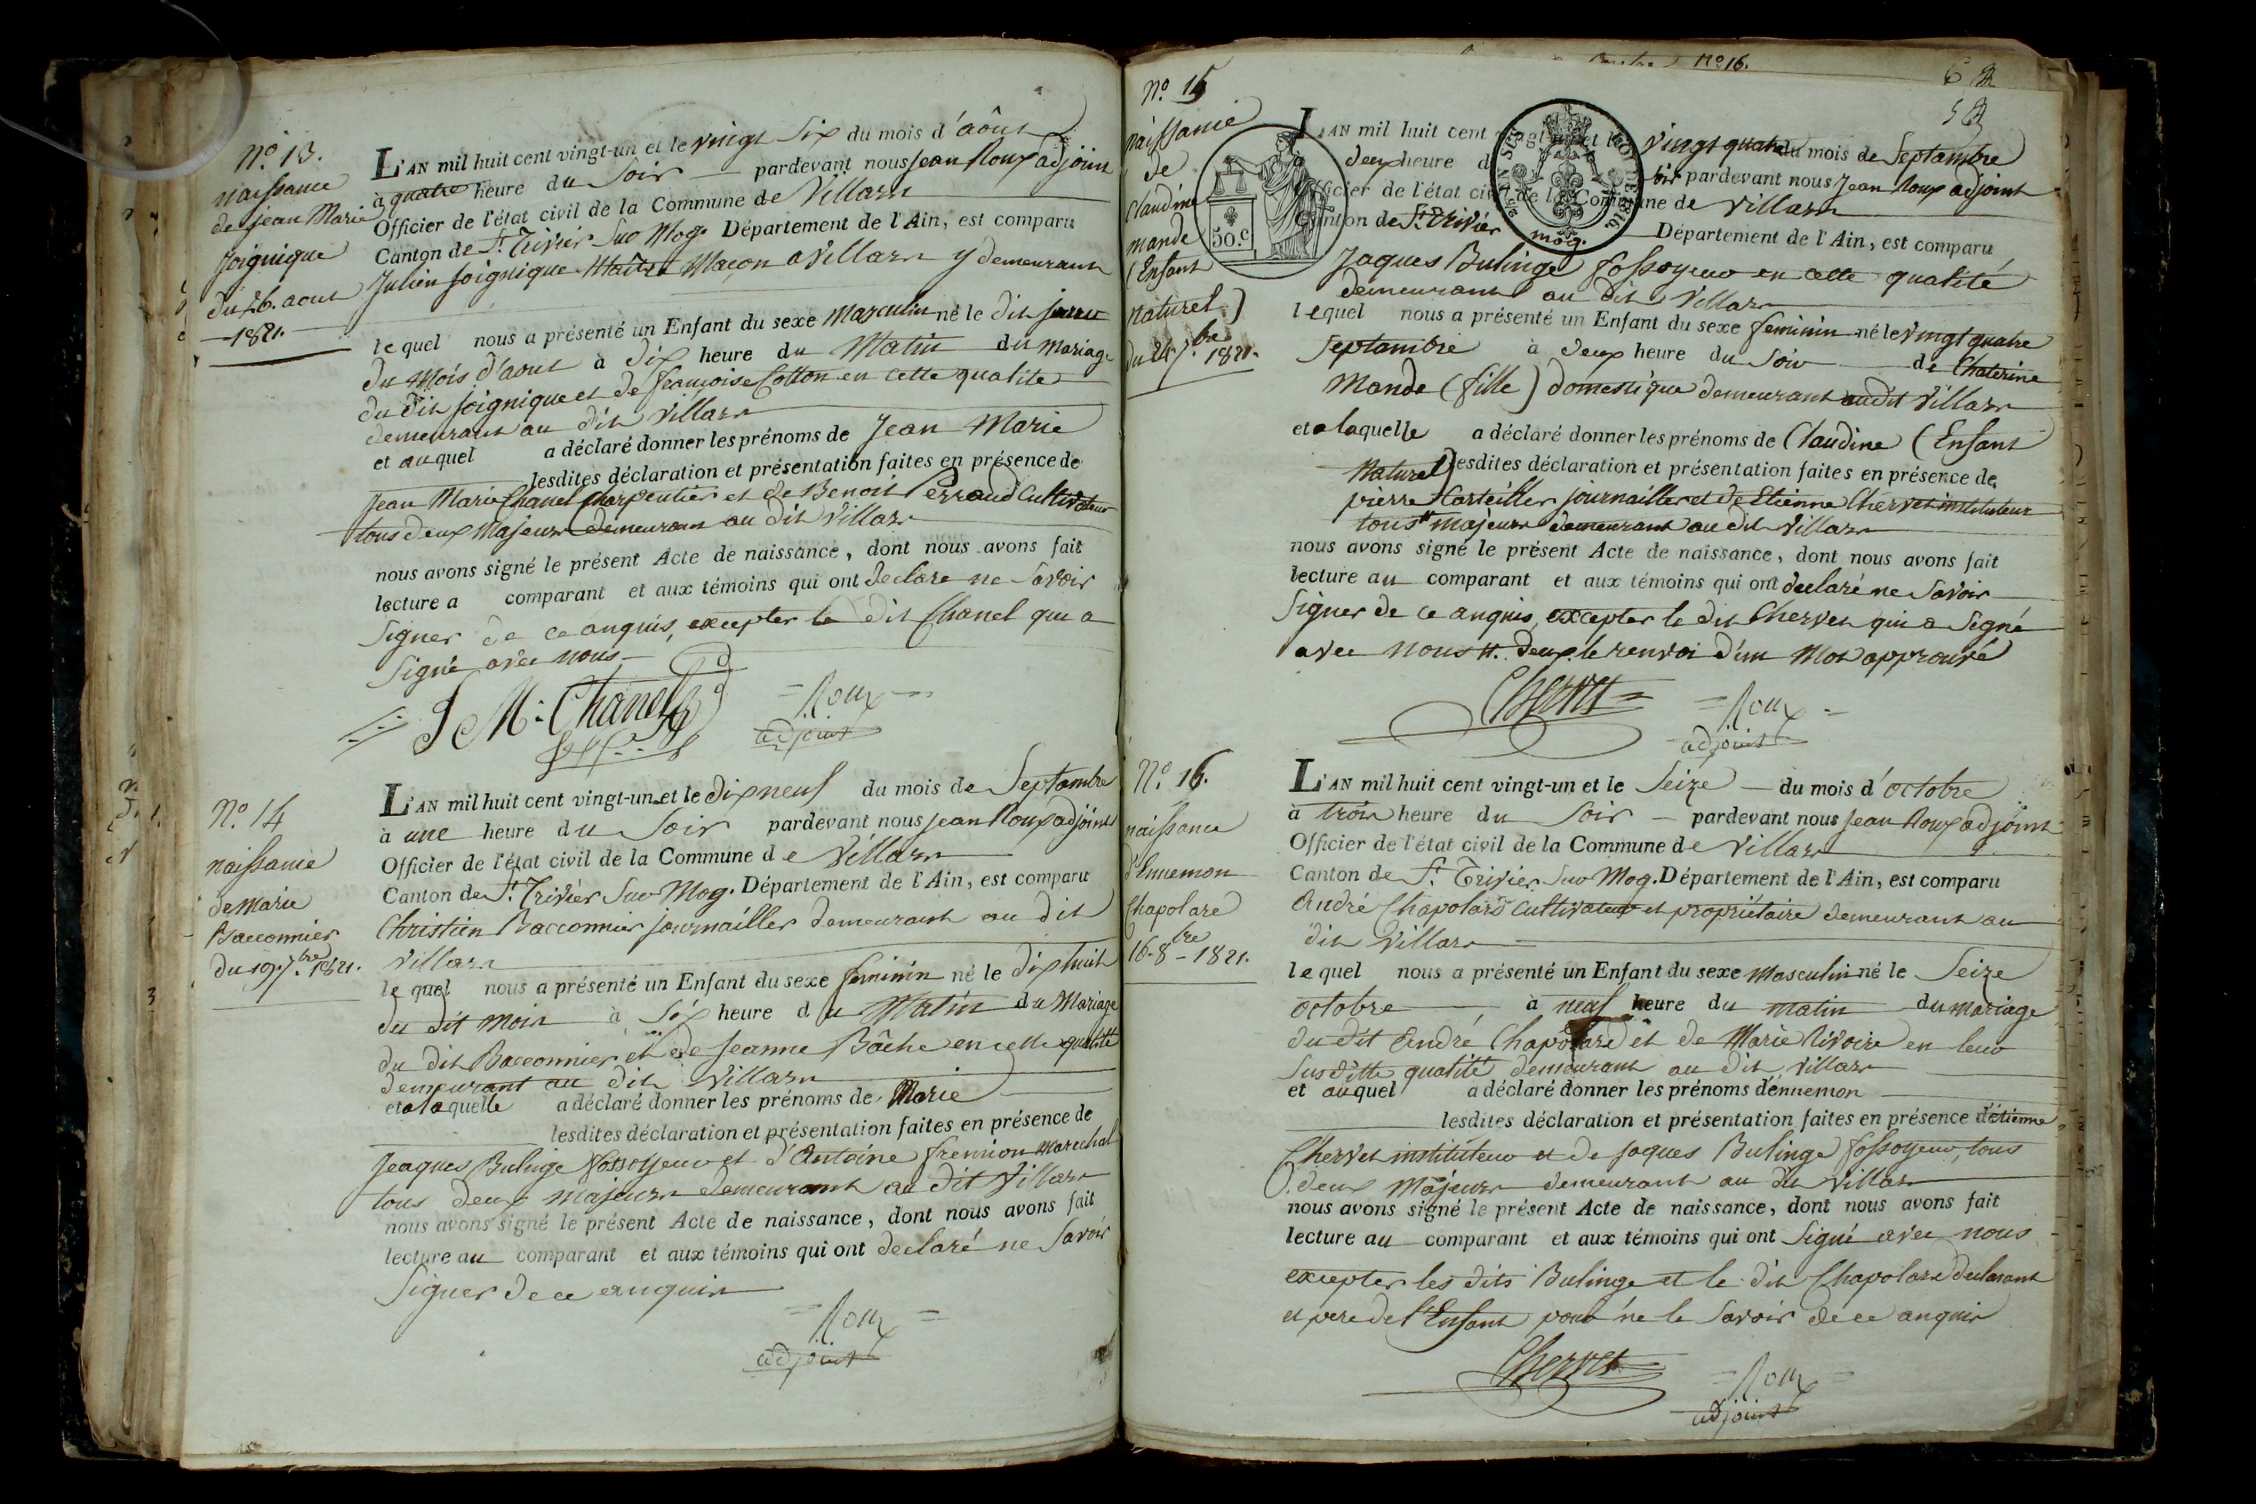 N.º 13.
naissance
de jean Marie
joignique
du 26. aout
1821.
L'AN mil huit cent vingt-un et le vingt Six du mois d'aôut
à quatre heure du Soir pardevant nous jean Roux adjoint
Officier de l'état civil de la Commune de Villars
Canton de St. Trivier Sur Mog. Département de l'Ain, est comparu
Julien joignique Maître Maçon a Villars y demeurant
le quel nous a présenté un Enfant du sexe Masculin né le dit jour
du Mois d'aout à dix heure du Matin du mariage
du dit joignique et de françoise Cotton en cette qualite
demeurant au dit Villars
et au quel a déclaré donner les prénoms de Jean Marie
lesdites déclaration et présentation faites en présence de
Jean Marie Chanel Charpentier et de Benoit Perraud Cultivateur
tous deux Majeurs demeurant au dit Villars
nous avons signé le présent Acte de naissance, dont nous avons fait
lecture a comparant et aux témoins qui ont declaré ne Savoir
Signer de ce enquis, excepter le dit Chanel qui a
Signé avec nous
J M. Chanel
Roux
adjoint
N.º 14
naissance
de Marie
Bacconnier
du 19. 7.bre 1821.
L'AN mil huit cent vingt-un et le dix neuf du mois de Septambre
à une heure du Soir pardevant nous jean Roux adjoint
Officier de l'état civil de la Commune de Villars
Canton de St. Trivier Sur Mog. Département de l'Ain, est comparu
Christin Bacconnier journailler demeurant au dit
Villars
le quel nous a présenté un Enfant du sexe feminin né le dix huit
du dit mois à Six heure du Matin du Mariage
du dit Bacconnier et de Jeanne Bâche en cette qualité
demeurant au dit Villars
et a laquelle a déclaré donner les prénoms de Marie
lesdites déclaration et présentation faites en présence de
Jeaques Bulinge fossoyeur et d'Antoine fremion Marechal
tous deux majeurs demeurant au dit Villars
nous avons signé le présent Acte de naissance, dont nous avons fait
lecture au comparant et aux témoins qui ont declaré ne Savoir
Signer de ce enquis
Roux
adjoint
Nº 16.
6
5
N.º 15
naissance
de
Claudine
mande
(Enfant
naturel)
du 24 7.bre 1821.
50.c
L'AN mil huit cent vingt-un et le vingt quatre du mois de Septambre
à deux heure du soir pardevant nous Jean Roux adjoint
Officier de l'état civil de la Commune de Villars
Canton de St. Trivier mog. Département de l'Ain, est comparu
Jaques Bulinge fossoyeur en cette qualité
demeurant au dit Villars
le quel nous a présenté un Enfant du sexe feminin né le vingt quatre
Septambre à deux heure du Soir de Chaterine
Mande (fille) domestique demeurant audit Villars
et a laquelle a déclaré donner les prénoms de Claudine (Enfant
Naturel) lesdites déclaration et présentation faites en présence de
pierre Carteiller journailler et de Etienne Chervet instituteur
tous majeurs demeurant au dit Villars
nous avons signé le présent Acte de naissance, dont nous avons fait
lecture au comparant et aux témoins qui ont declaré ne Savoir
Signer de ce enquis, excepter le dit Chervet qui a Signé
avec nous #. deux. le renvoi d'un Mot approuvé
Chervet
Roux
adjoint
N.º 16.
naissance
d'Ennemon
Chapolard
16. 8bre 1821.
L'AN mil huit cent vingt-un et le Seize du mois d'octobre
à trois heure du Soir pardevant nous Jean Roux adjoint
Officier de l'état civil de la Commune de Villars
Canton de St. Trivier Sur Mog. Département de l'Ain, est comparu
André Chapolard Cultivateur et propriétaire demeurant au
dit Villars
le quel nous a présenté un Enfant du sexe Masculin né le Seize
octobre à neuf heure du matin du mariage
du dit André Chapolard et de Marie Rivoire en leur
Susditte qualité demeurant au dit Villars
et auquel a déclaré donner les prénoms d'ennemon
lesdites déclaration et présentation faites en présence d'étienne
Chervet instituteur et de jaques Bulinge fossoyeur, tous
deux Majeurs demeurant au dit Villars
nous avons signé le présent Acte de naissance, dont nous avons fait
lecture au comparant et aux témoins qui ont Signé avec nous
excepter les dits Bulinge et le dit Chapolard declarant
et pere de l'Enfant pour ne le Savoir de ce enquis
Chervet
Roux
adjoint